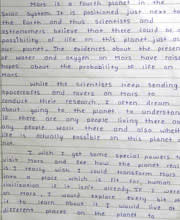 Mars is a fourth planet in the
Solar System. It is positioned just next to
the Earth and thus scientists and
astronomers believe that there could be a
possibility of life on this planet just as
our planet. The evidences about the presence
of water and oxygen on Mars have raised
hopes about the probability of life on
Mars.
While the scientists keep sending
spacecrafts and rovers on Mars to
conduct their research, I often dream
about going to the planet to understand
is there are any people living there or
any people work there and also whether
life is actually possible on this planet or
not.
I wish I get some special powers to
visit Mars and see how the planet really
is. I really wish I could transform Mars
into a place which is fit for human
civilization if it isn't already. If I were
on Mars, I would explore every bit of
it to learn about it. I would live at
different places on the planet to